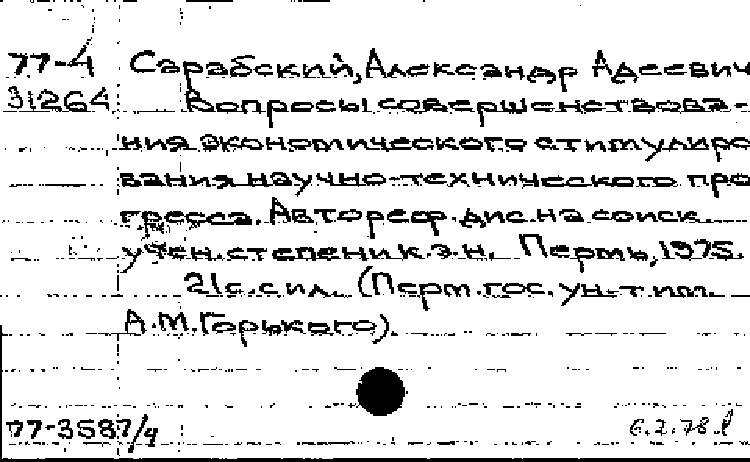 77-4 Сарабский, Александр Адеевич
31264 Вопросы совершенствова-
ния экономического стимулиро
вания научно-технического про
гресса. Автореф. дис. на соиск.
учен. степени к.э.н. Пермь, 1975.
21 с. с ил. (Перм. гос. ун-т им.
А.М. Горького).
77-3587/4 6.2.78